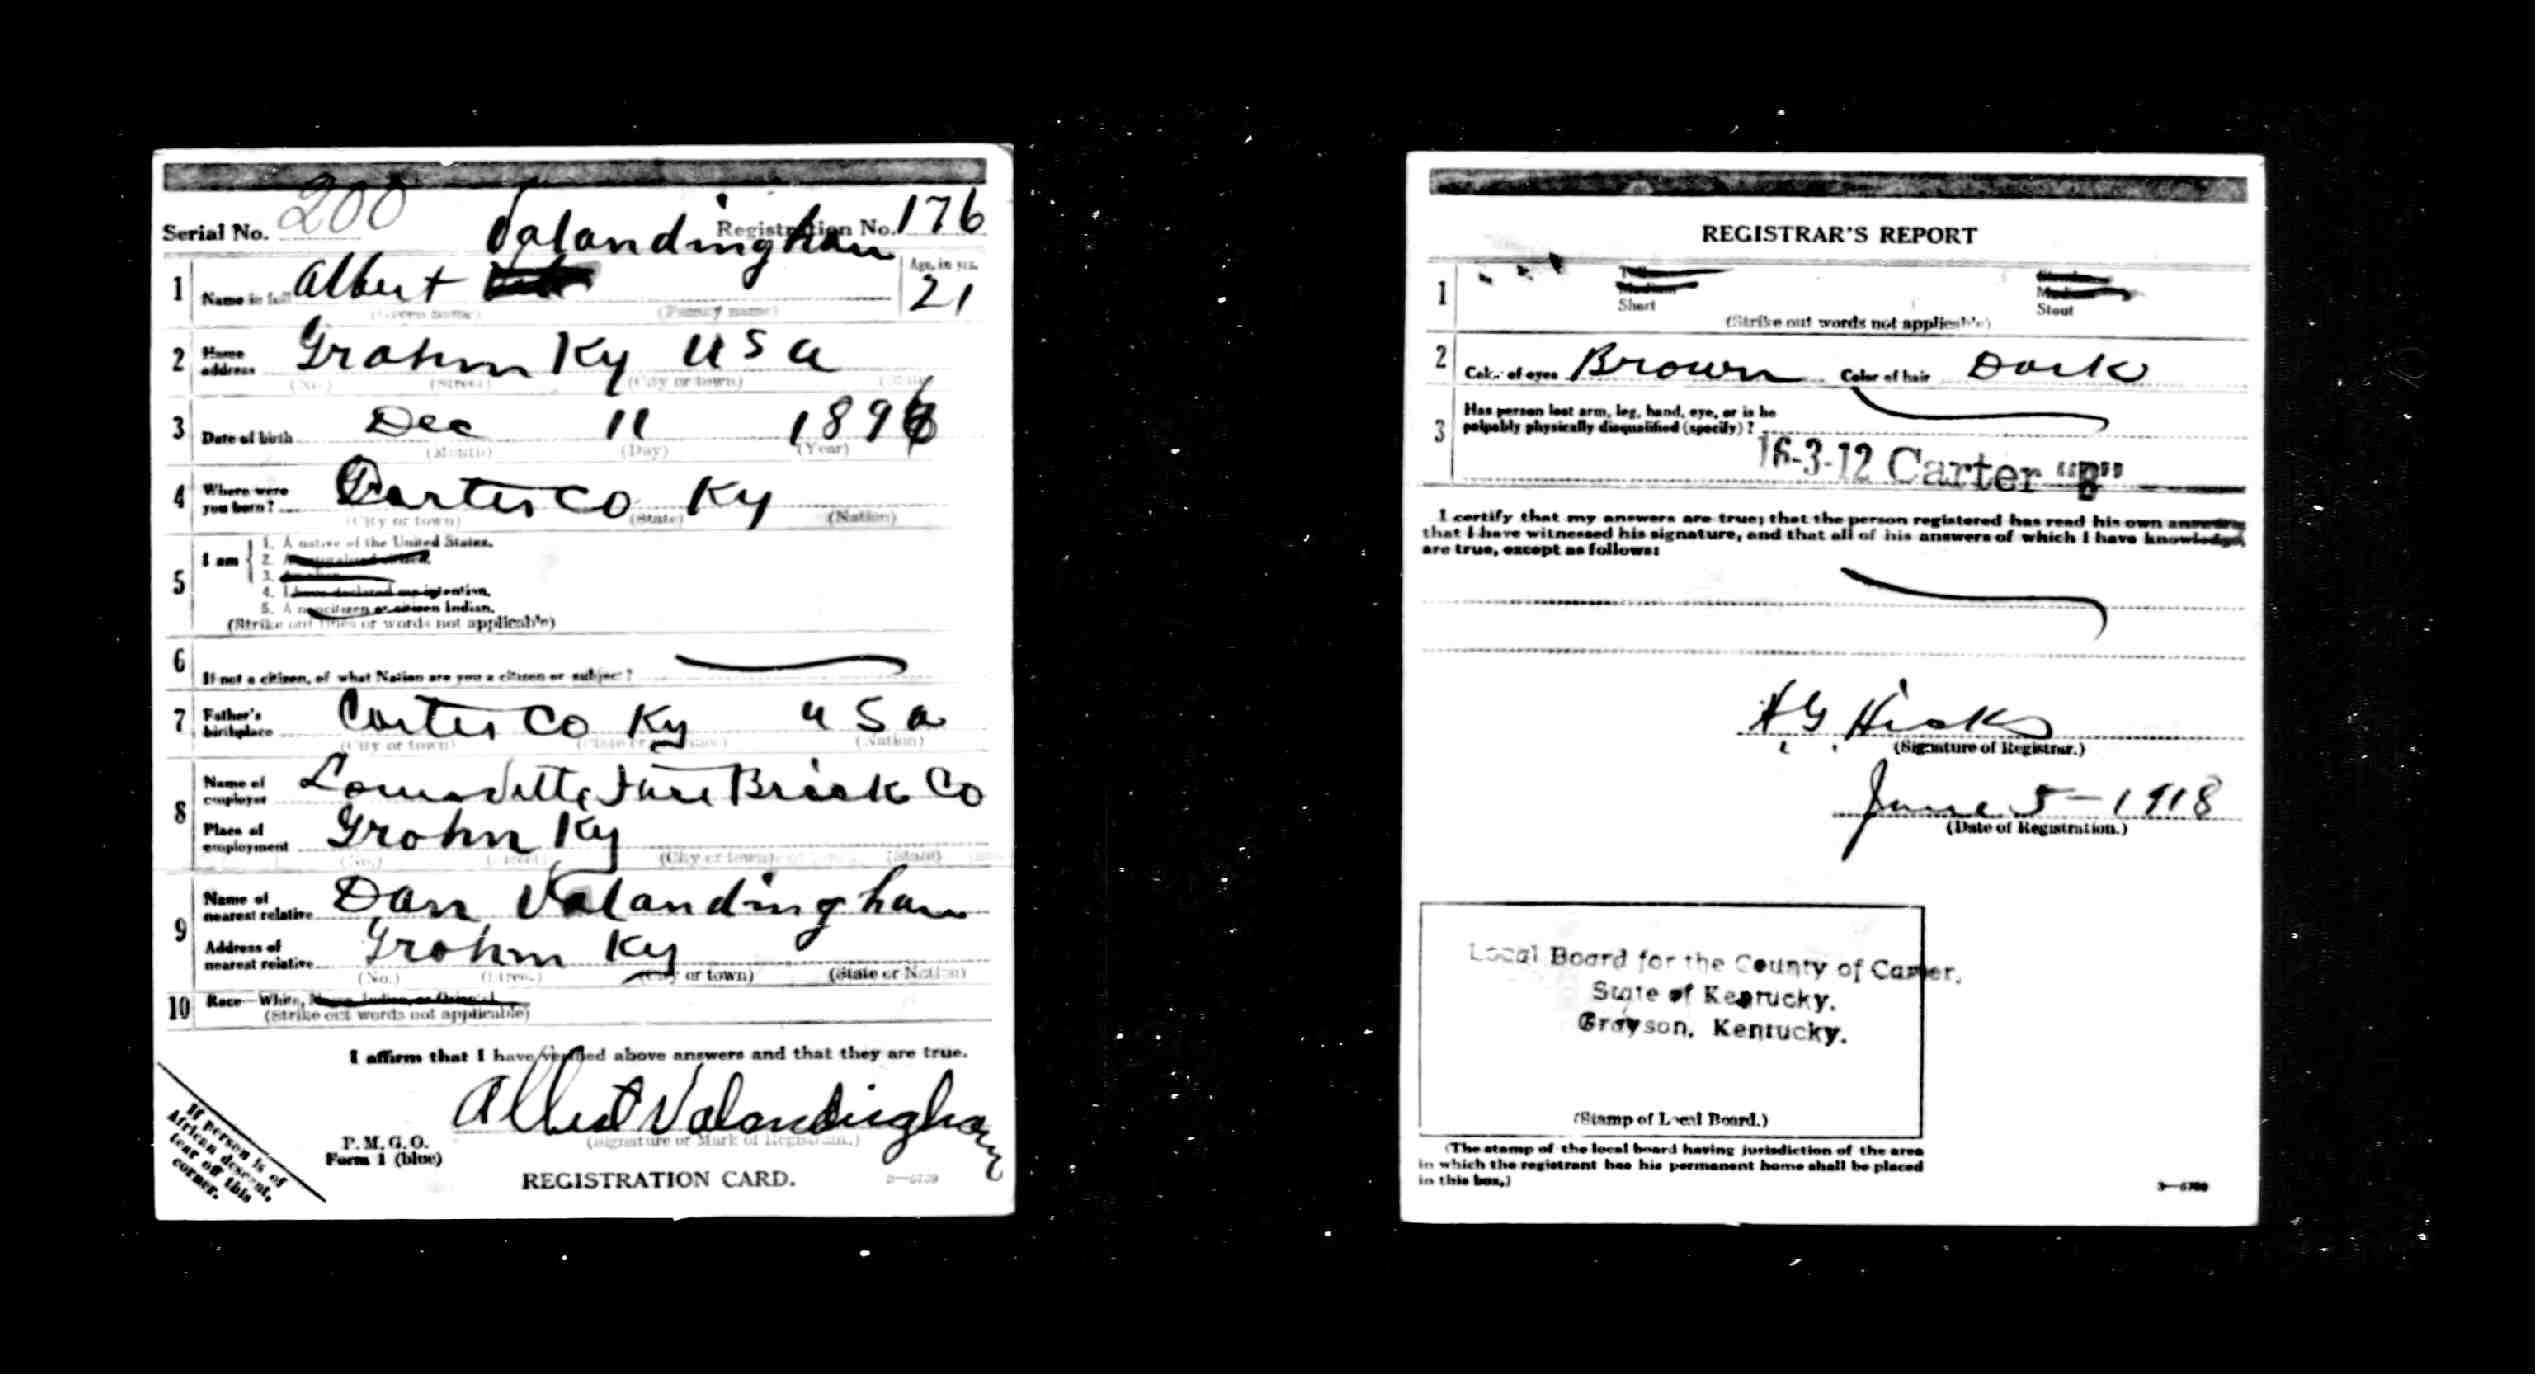 Serial No. 200 Registration No. 176
Valandingham
1 Name in full Albert Age, in yrs. 21
(Given name) (Family name)
2 Home address Grahn Ky U S A
(No.) (Street) (City or town) (State)
3 Date of birth Dec 11 1896
(Month) (Day) (Year)
4 Where were you born? Carter Co Ky
(City or town) (State) (Nation)
5 I am 1. A native of the United States.
2. A naturalized citizen.
3. An alien.
4. I have declared my intention.
5. A noncitizen or citizen Indian.
(Strike out lines or words not applicable)
6 If not a citizen, of what Nation are you a citizen or subject?
7 Father's birthplace Carter Co Ky U S A
(City or town) (Nation)
8 Name of employer Fire Brick Co
Place of employment Grahn Ky
(No.) (Street) (City or town) (State)
9 Name of nearest relative Dan Valandingham
Address of nearest relative Grahn Ky
(No.) (Street) (City or town) (State or Nation)
10 Race—White, Negro, Indian, or Oriental
(Strike out words not applicable)
I affirm that I have verified above answers and that they are true.
Albert Valandingham
(Signature or Mark of Registrant.)
P. M. G. O.
Form 1 (blue)
REGISTRATION CARD.
If person is of
African descent,
tear off this
corner.
REGISTRAR'S REPORT
1 Tall Slender
Medium Medium
Short Stout
(Strike out words not applicable)
2 Color of eyes Brown Color of hair Dark
3 Has person lost arm, leg, hand, eye, or is he
palpably physically disqualified (specify)?
16-3-12 Carter "B"
I certify that my answers are true; that the person registered has read his own answers,
that I have witnessed his signature, and that all of his answers of which I have knowledge
are true, except as follows:
H G Hicks
(Signature of Registrar.)
June 5-1918
(Date of Registration.)
Local Board for the County of Carter,
State of Kentucky.
Grayson, Kentucky.
(Stamp of Local Board.)
(The stamp of the local board having jurisdiction of the area
in which the registrant has his permanent home shall be placed
in this box.)
3—6700